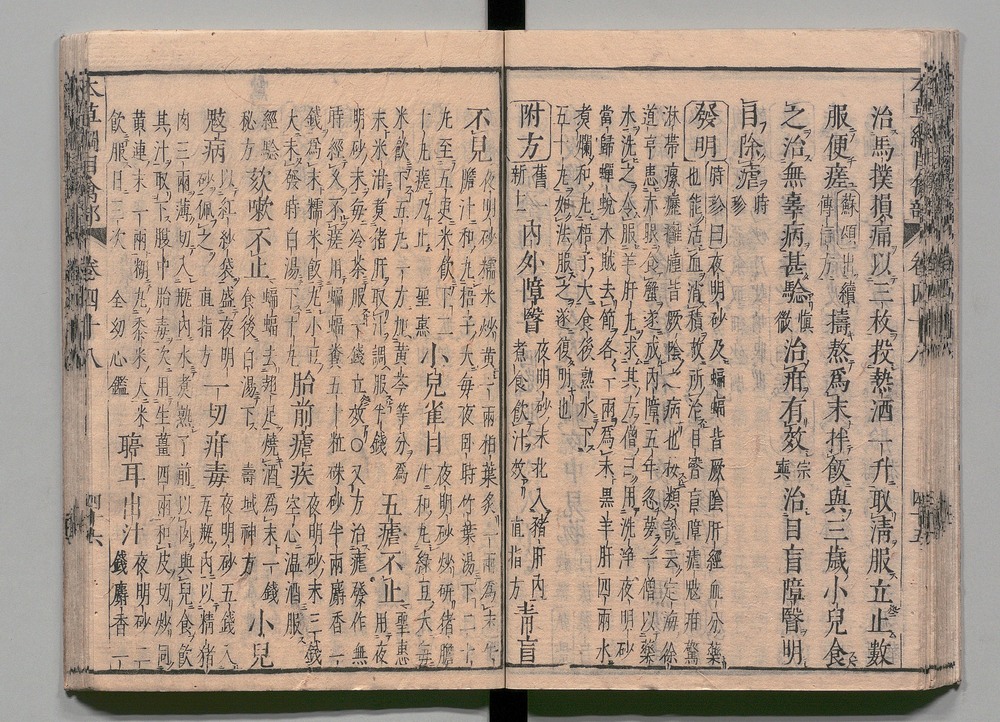 治馬撲損痛以三枚投熱酒一升取清服立止數
服便瘥蘇頌出續傳信方擣熬爲末拌飯與三歲小兒食
之治無辜病甚驗慎微治疳有效宗奭治目盲障瞖明
目除瘧時珍
發明時珍曰夜明砂及蝙蝠皆厥陰肝經血分藥
也能活血消積故所治目瞖盲障瘧魃疳驚
淋帶瘰癧癰腫皆厥陰之病也按類說云定海徐
道亨患赤眼食蟹遂成內障五年忽夢一僧以藥
水洗之令服羊肝丸求其方僧曰用洗淨夜明砂
當歸蟬蛻木賊去節各一兩爲末黑羊肝四兩水
煮爛和丸如梧子大食後熟水下
五十丸如法服之遂復明也
附方舊一新十一內外障瞖夜明砂末化入豬肝內煮食飲汁效直指方青盲
不見夜明砂糯米炒黃一兩柏葉炙一兩爲末牛
膽汁和丸梧子大每夜臥時竹葉湯下二十
丸至五更米飲下二十丸瘥乃止聖惠小兒雀目
夜明砂炒研豬膽汁和丸綠豆大每
米飲下五丸一方加黃芩等分爲
末米泔煮豬肝取汁調服牛錢五瘧不止聖惠用夜
明砂末每冷茶服一錢立效○又方治瘧發作無
時經久不瘥用蝙蝠糞五十粒硃砂半兩麝香一
錢爲末糯米飯丸小豆大未發時白湯下十丸胎前瘧疾夜明砂末三錢空心溫酒服
經驗秘方欬嗽不止蝙蝠去翅足燒焦爲末食後白湯下一錢壽域神方小兒
魃病以紅紗袋盛夜明砂佩之直指方一切疳毒夜明砂五錢入瓦瓶內以精豬
肉三兩薄切入瓶內水煮熟午前以肉與兒食飲
其汁取下腹中胎毒次用生薑四兩和皮切炒同
黃連末一兩糊丸黍米大米
飲服日三次全幼心鑑聤耳出汁夜明砂二錢麝香一
本草綱目禽部 卷四十八 四十五
本草綱目禽部 卷四十八 四十六